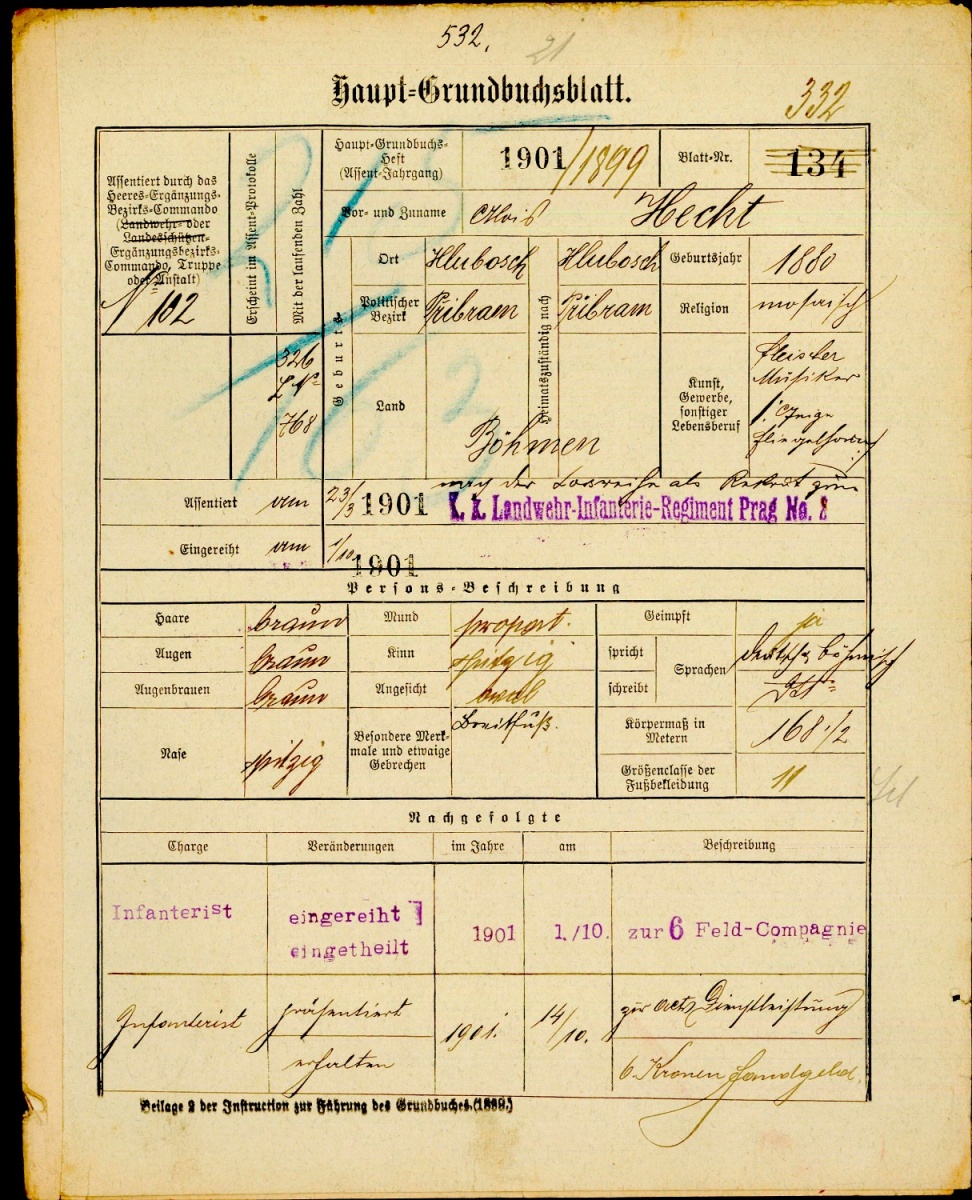 532.
21
Haupt-Grundbuchsblatt.
332
Assentiert durch das
Heeres-Ergänzungs-
Bezirks-Commando
(Landwehr- oder
Landesschützen-
Ergänzungsbezirks-
Commando, Truppe
oder Anstalt)
№ 102
Erscheint im Assent-Protokolle
Mit der laufenden Zahl
326
768
Haupt-Grundbuchs-
Heft
(Assent-Jahrgang)
1901/1899
Blatt-Nr.
134
Vor- und Zuname
Alois Hecht
Geburts
Ort
Hlubosch
Politischer
Bezirk
Pribram
Land
Böhmen
Heimatszuständig nach
Hlubosch
Pribram
Geburtsjahr
1880
Religion
mosaisch
Kunst,
Gewerbe,
sonstiger
Lebensberuf
Fleischer
Musiker
Assentiert am 23/3 1901
nach der Losreihe als Rekrut zum
K. k. Landwehr-Infanterie-Regiment Prag No. 8
Eingereiht am 1/10 1901
Persons-Beschreibung
Haare braun
Augen braun
Augenbrauen braun
Nase spitzig
Mund proport.
Kinn spitzig
Angesicht oval
Besondere Merk-
male und etwaige
Gebrechen
Breitfuß.
Geimpft ja
spricht
schreibt
Sprachen
deutsch, böhmisch
Körpermaß in
Metern
168 1/2
Größenclasse der
Fußbekleidung
11
Nachgefolgte
Charge Veränderungen im Jahre am Beschreibung
Infanterist eingereiht 1901 1./10. zur 6 Feld-Compagnie
eingetheilt
Infanterist präsentiert 1901. 14/10. zur act. Dienstleistung
erhalten 6 Kronen Handgeld.
Beilage 2 der Instruction zur Führung des Grundbuches. (1889.)